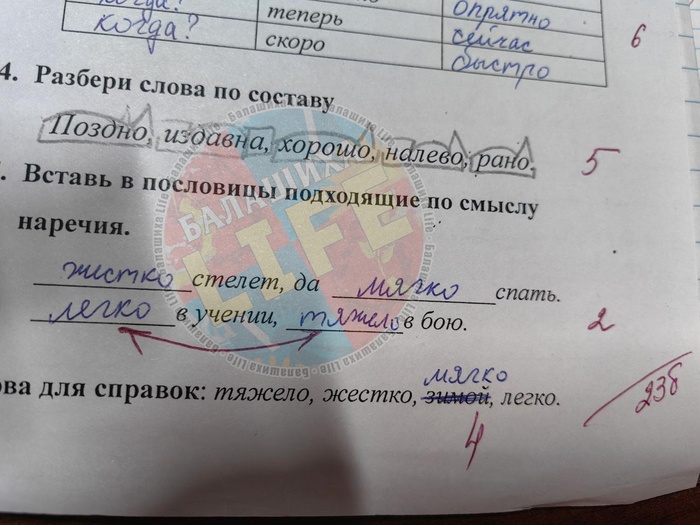 когда? теперь опрятно
когда? скоро сейчас
быстро
6
4. Разбери слова по составу
Поздно, издавна, хорошо, налево, рано.
5
Вставь в пословицы подходящие по смыслу
наречия.
жистко стелет, да мягко спать.
легко в учении, тяжело в бою.
2
мягко
ова для справок: тяжело, жестко, зимой, легко.
23б
4
БАЛАШИХА
LIFE
Балашиха Life